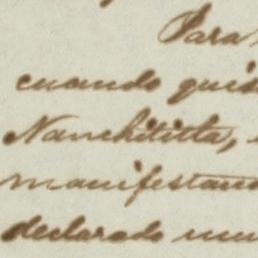 Para
cuando quis
Nanchititla,
manifestand
declarado mu